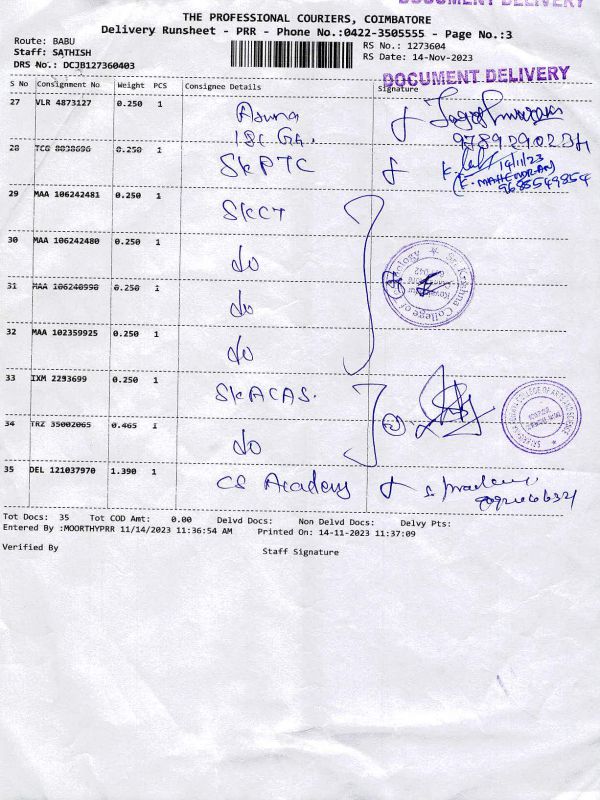 DOCUMENT DELIVERY
THE PROFESSIONAL COURIERS, COIMBATORE
Delivery Runsheet - PRR - Phone No.:0422-3505555 - Page No.:3
Route: BABU
Staff: SATHISH
DRS No.: DCJB127360403
RS No.: 1273604
RS Date: 14-Nov-2023
DOCUMENT DELIVERY
S No Consignment No Weight PCS Consignee Details Signature
27 VLR 4873127 0.250 1
28 TCG 8038696 0.250 1 SKPTC
14/11/23
K. MAHENDRAN
9685549854
29 MAA 106242481 0.250 1 SKCT
30 MAA 106242480 0.250 1 do
31 MAA 106240990 0.250 1 do
32 MAA 102359925 0.250 1 do
Sri Krishna College of Technology
33 IXM 2293699 0.250 1 SKACAS.
34 TRZ 35002065 0.465 1 do
COLLEGE OF ARTS AND SCIENCE
35 DEL 121037970 1.390 1 CS Academy
Tot Docs: 35 Tot COD Amt: 0.00 Delvd Docs: Non Delvd Docs: Delvy Pts:
Entered By :MOORTHYPRR 11/14/2023 11:36:54 AM Printed On: 14-11-2023 11:37:09
Verified By Staff Signature